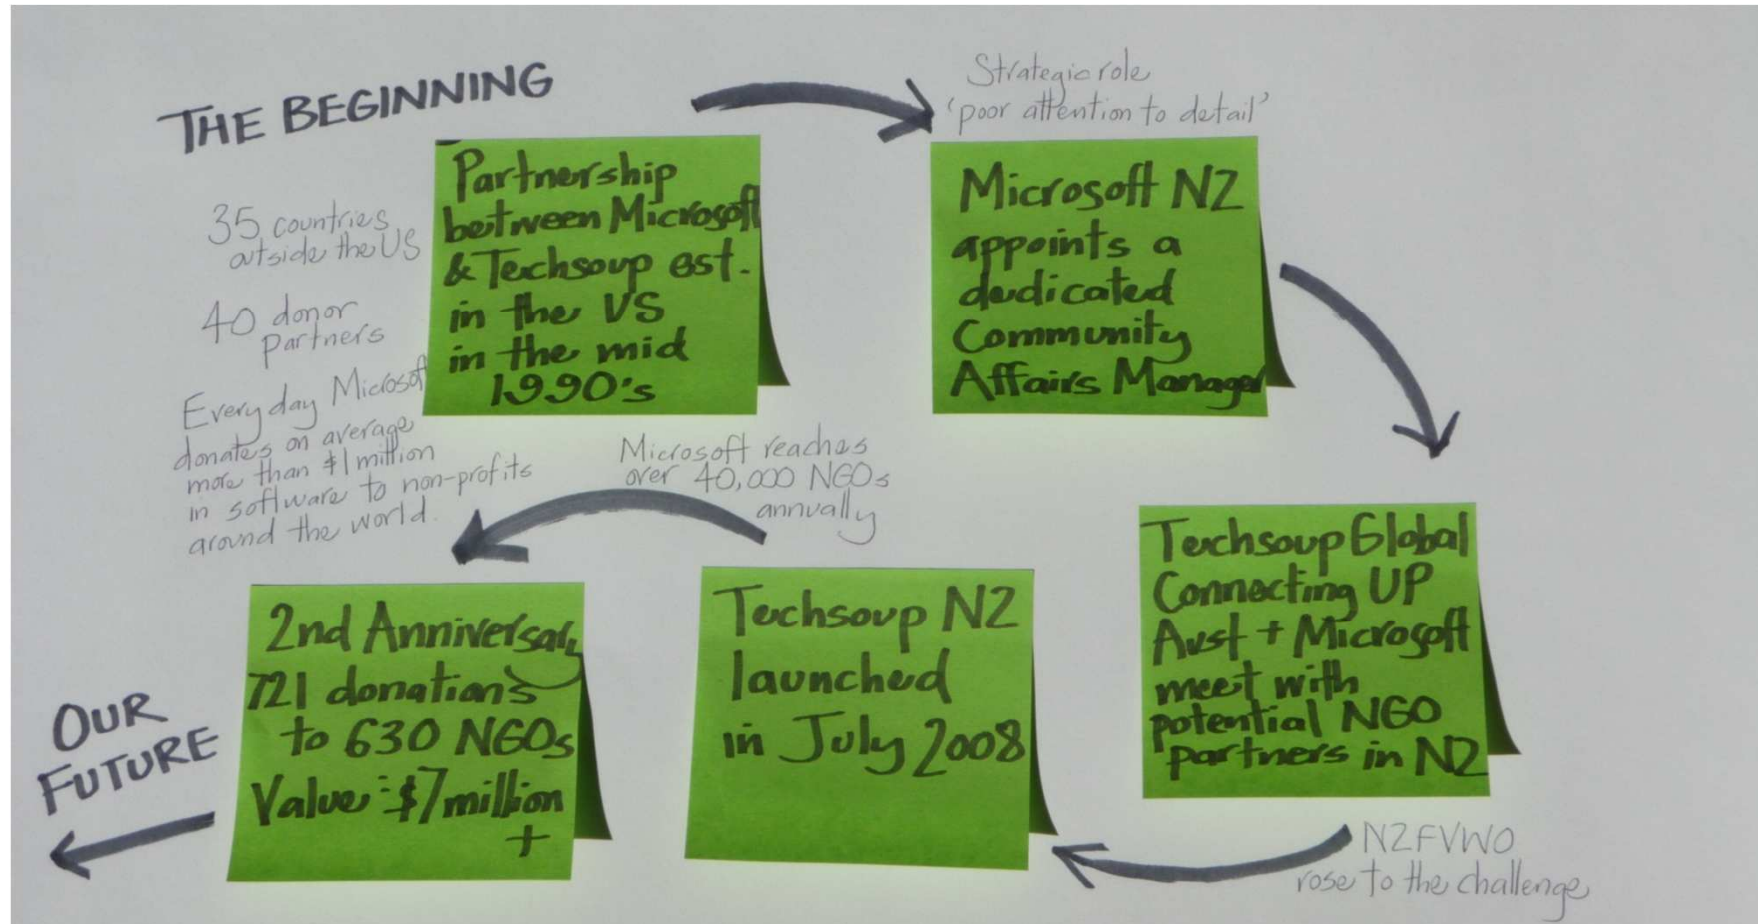 THE BEGINNING
35 countries
outside the US
40 donor
partners
Every day Microsoft
donates on average
more than $1 million
in software to non-profits
around the world.
Partnership
between Microsoft
& Techsoup est.
in the US
in the mid
1990's
Strategic role
'poor attention to detail'
Microsoft NZ
appoints a
dedicated
Community
Affairs Manager
Techsoup Global
Connecting UP
Aust + Microsoft
meet with
potential NGO
partners in NZ
NZFVWO
rose to the challenge
Techsoup NZ
launched
in July 2008
Microsoft reaches
over 40,000 NGOs
annually
2nd Anniversary
721 donations
to 630 NGOs
Value: $7million
+
OUR
FUTURE